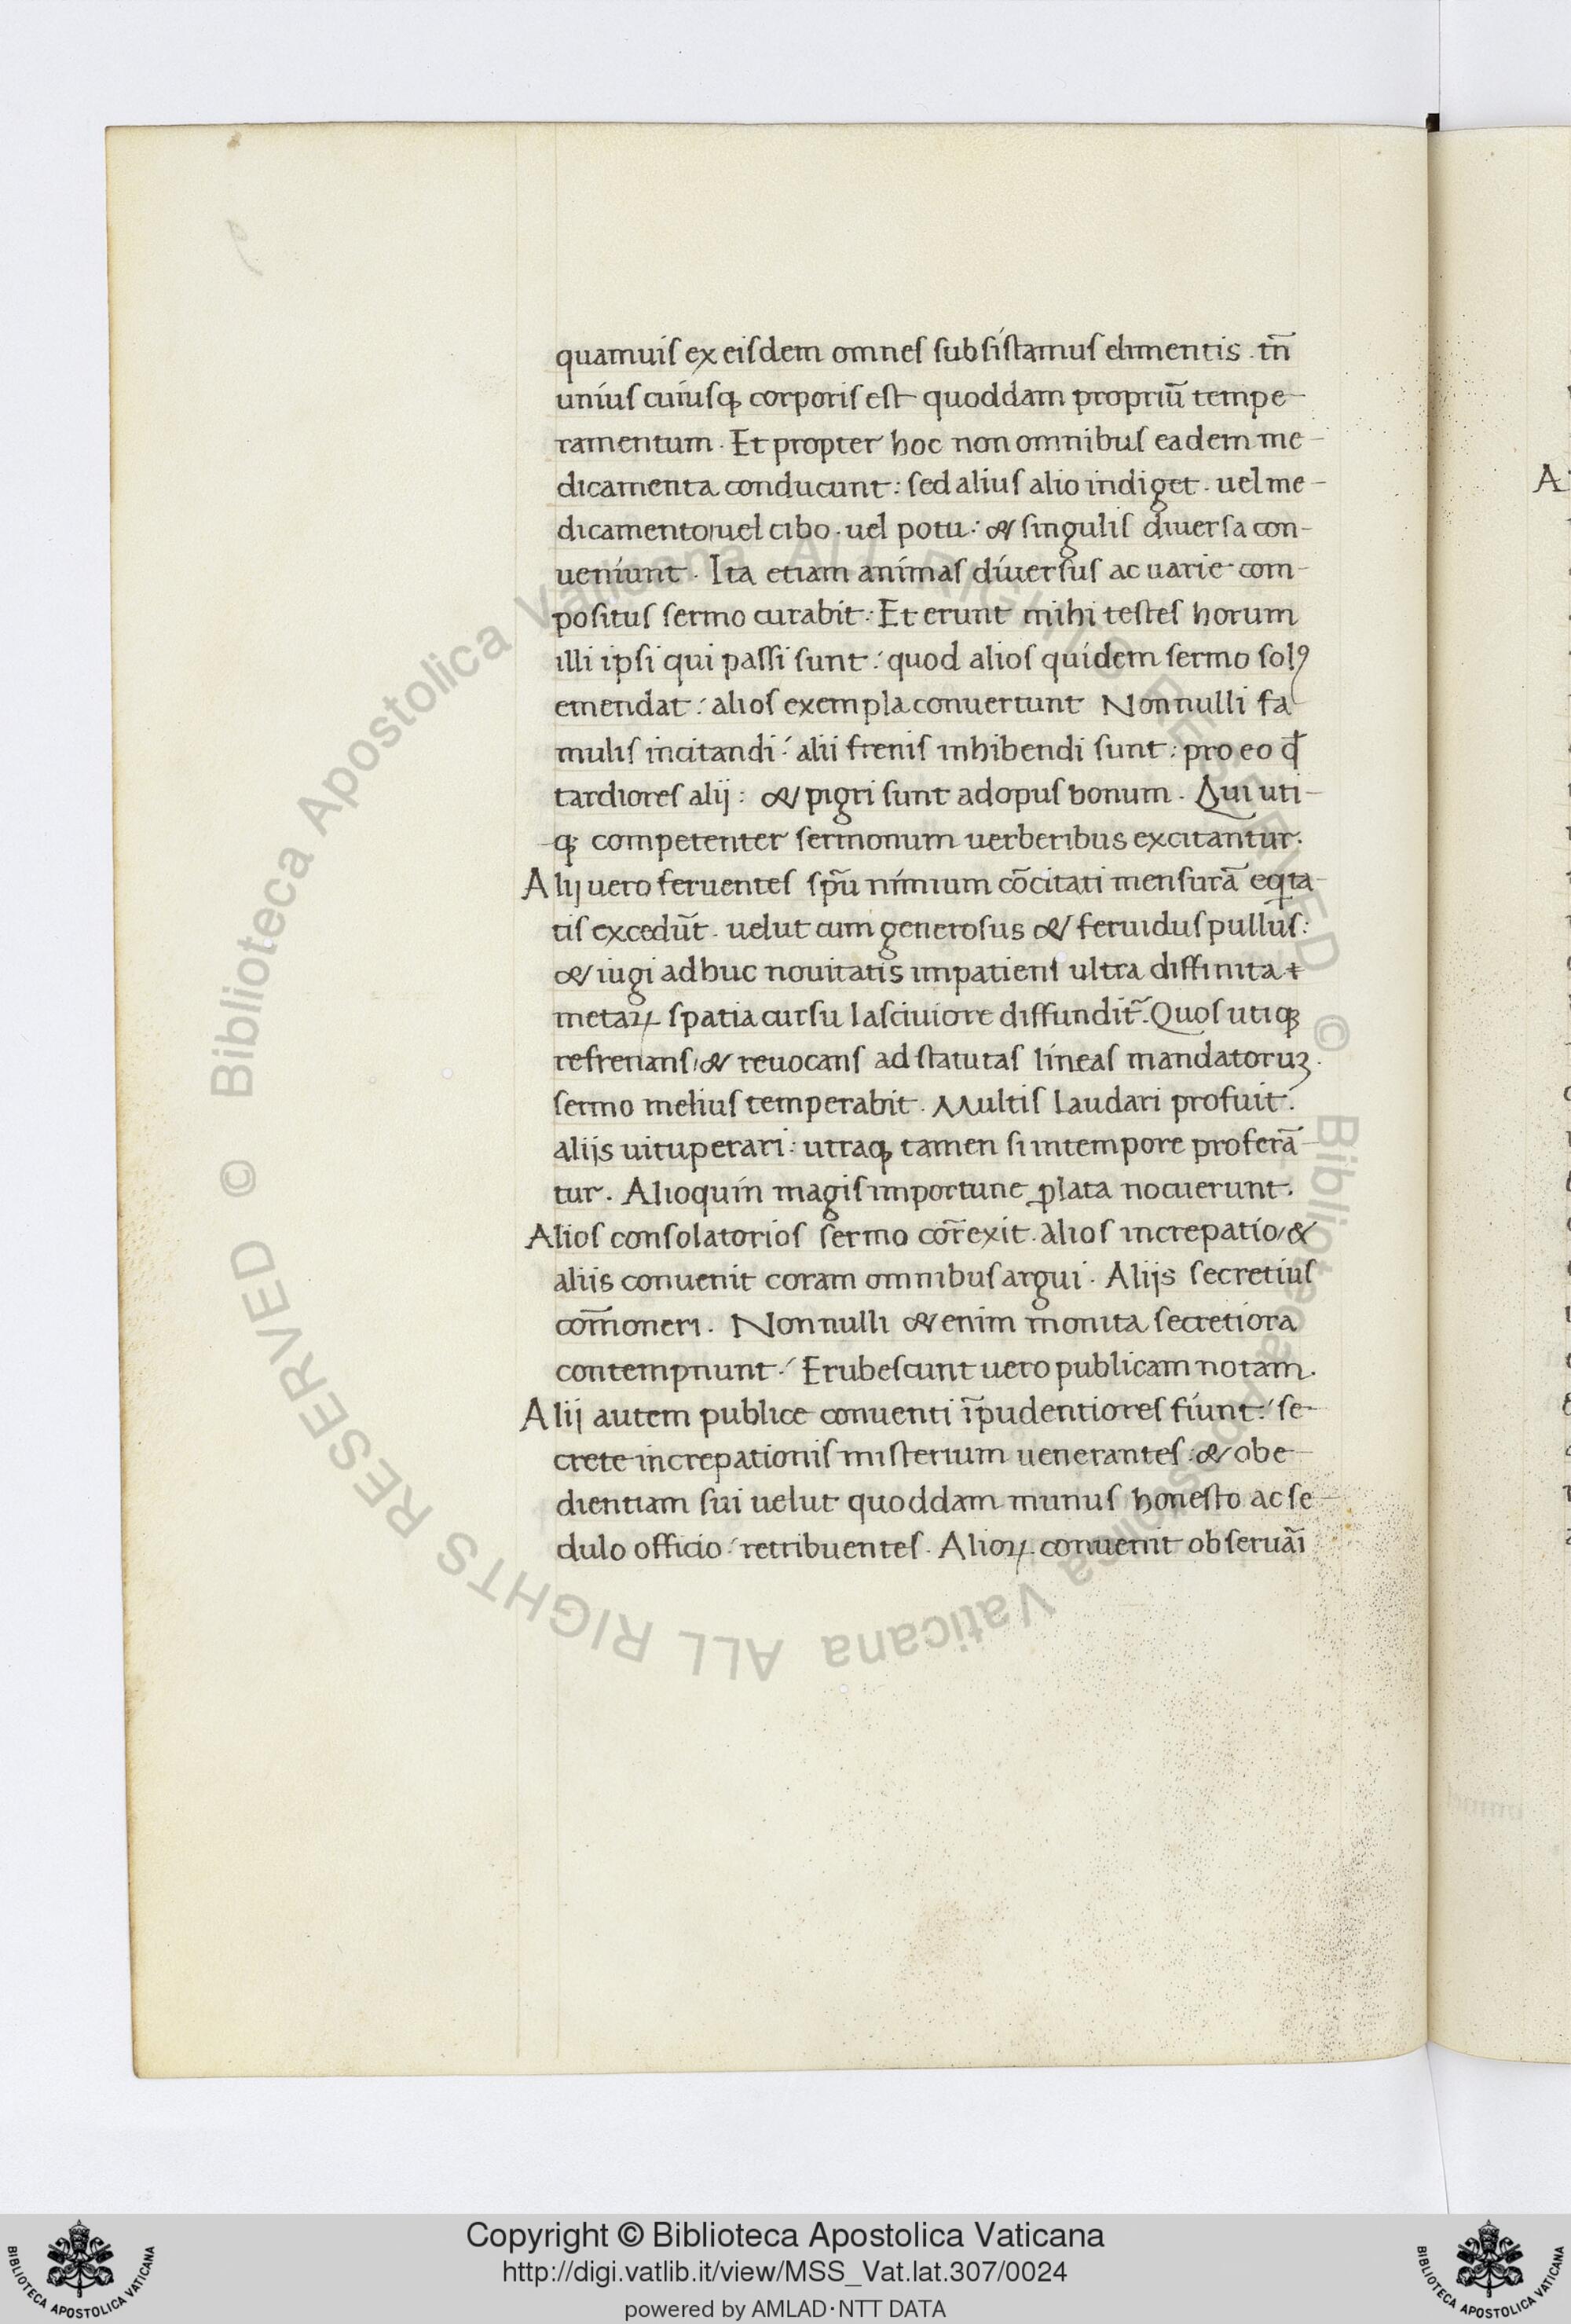 quamuis ex eisdem omnes subsistamus elimentis . tn̄
unius cuiusqꝫ corporis est quoddam propriū tempe-
ramentum . Et propter hoc non omnibus eadem me-
dicamenta conducunt : sed alius alio indiget . uel me-
dicamento/uel cibo . uel potu : & singulis diuersa con-
ueniunt . Ita etiam animas diuersus ac uarie com-
positus sermo curabit : Et erunt mihi testes horum
illi ipsi qui passi sunt : quod alios quidem sermo solꝰ
emendat : alios exempla conuertunt Nonnulli fa
mulis incitandi : alii frenis inhibendi sunt : pro eo ꝙ
tardiores alij : & pigri sunt ad opus bonum . Qui uti-
-qꝫ competenter sermonum uerberibus excitantur .
Alij uero feruentes spū nimium cōcitati mensurā eqta-
tis excedūt . uelut cum generosus & feruidus pullus :
& iugi adhuc nouitatis impatiens ultra diffinita ɫ
metaꝝ spatia cursu lasciuiore diffundit̄ . Quos utiqꝫ
refrenans/& reuocans ad statutas lineas mandatoruꝫ .
sermo melius temperabit . Multis laudari profuit .
alijs uituperari : utraqꝫ tamen si in tempore proferā-
tur . Alioquin magis importune ꝓlata nocuerunt .
Alios consolatorios sermo cor̄exit . alios increpatio/&
aliis conuenit coram omnibus argui . Alijs secretius
com̄oneri . Nonnulli & enim monita secretiora
contempnunt : Erubescunt uero publicam notam .
Alij autem publice conuenti īpudentiores fiunt : se-
crete increpationis misterium uenerantes : & obe-
dientiam sui uelut quoddam munus honesto ac se-
dulo officio : retribuentes . Alioꝝ conuenit obseruāi
© Biblioteca Apostolica Vaticana ALL RIGHTS RESERVED © Biblioteca Apostolica Vaticana ALL RIGHTS RESERVED
Copyright © Biblioteca Apostolica Vaticana
http://digi.vatlib.it/view/MSS_Vat.lat.307/0024
powered by AMLAD·NTT DATA
BIBLIOTECA APOSTOLICA VATICANA
BIBLIOTECA APOSTOLICA VATICANA